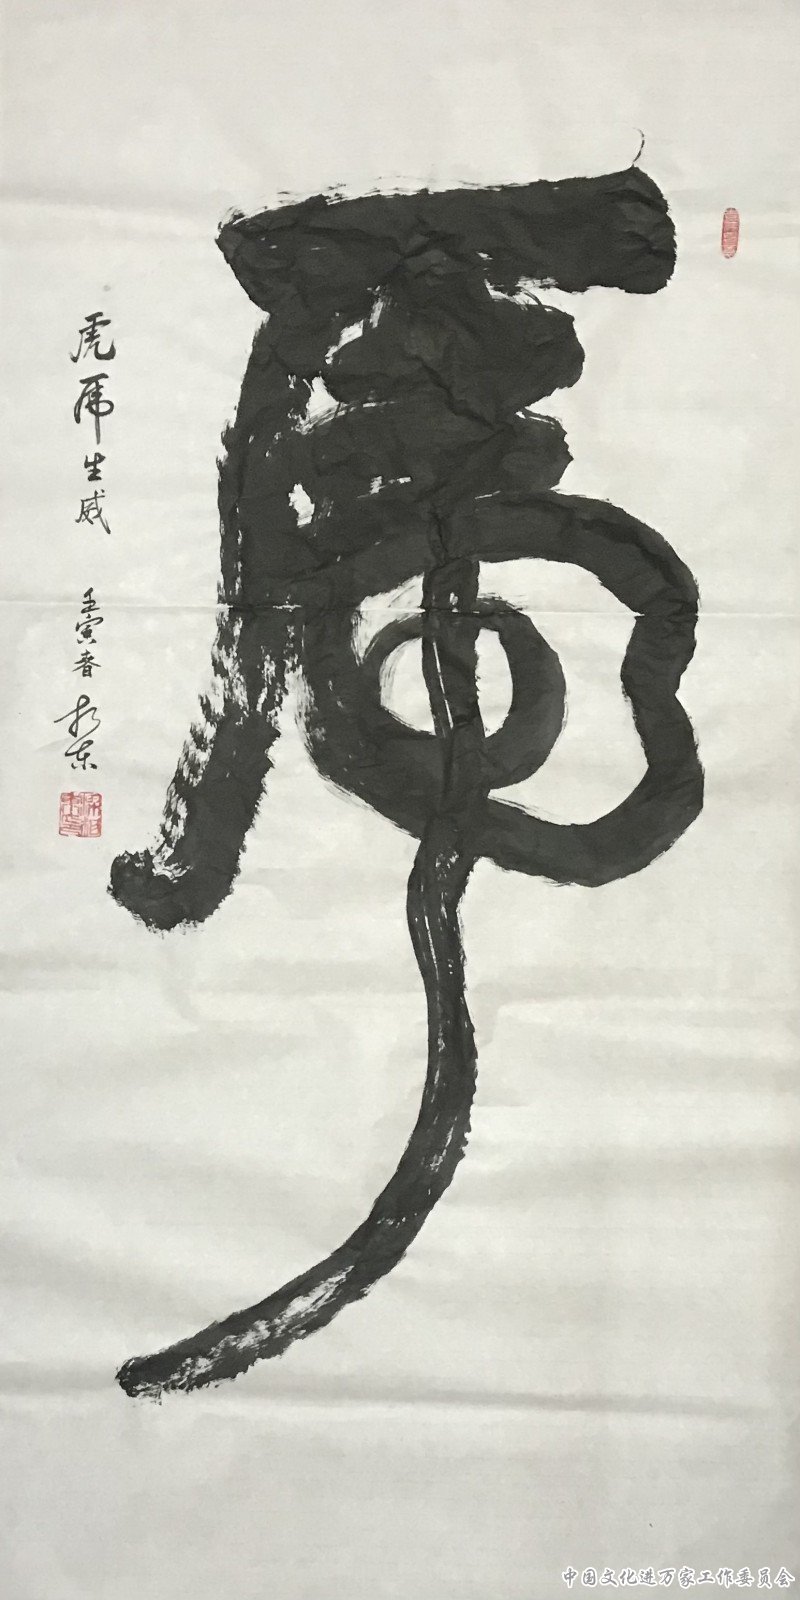 乕
虎乕生威
壬寅春
中国文化进万家工作委员会